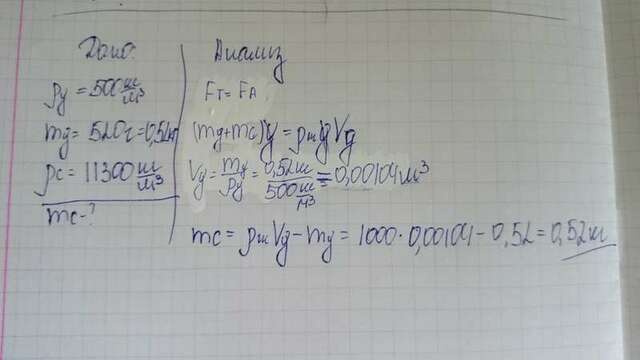 Дано:
ρд = 500 кг/м³
mд = 520г = 0,52кг
ρс = 11300 кг/м³
mс - ?
Анализ
Fт = FА
(mд+mс)g = ρжgVд
Vд = mд/ρд = 0,52кг/500 кг/м³ = 0,00104м³
mс = ρжVд - mд = 1000·0,00104 - 0,52 = 0,52кг